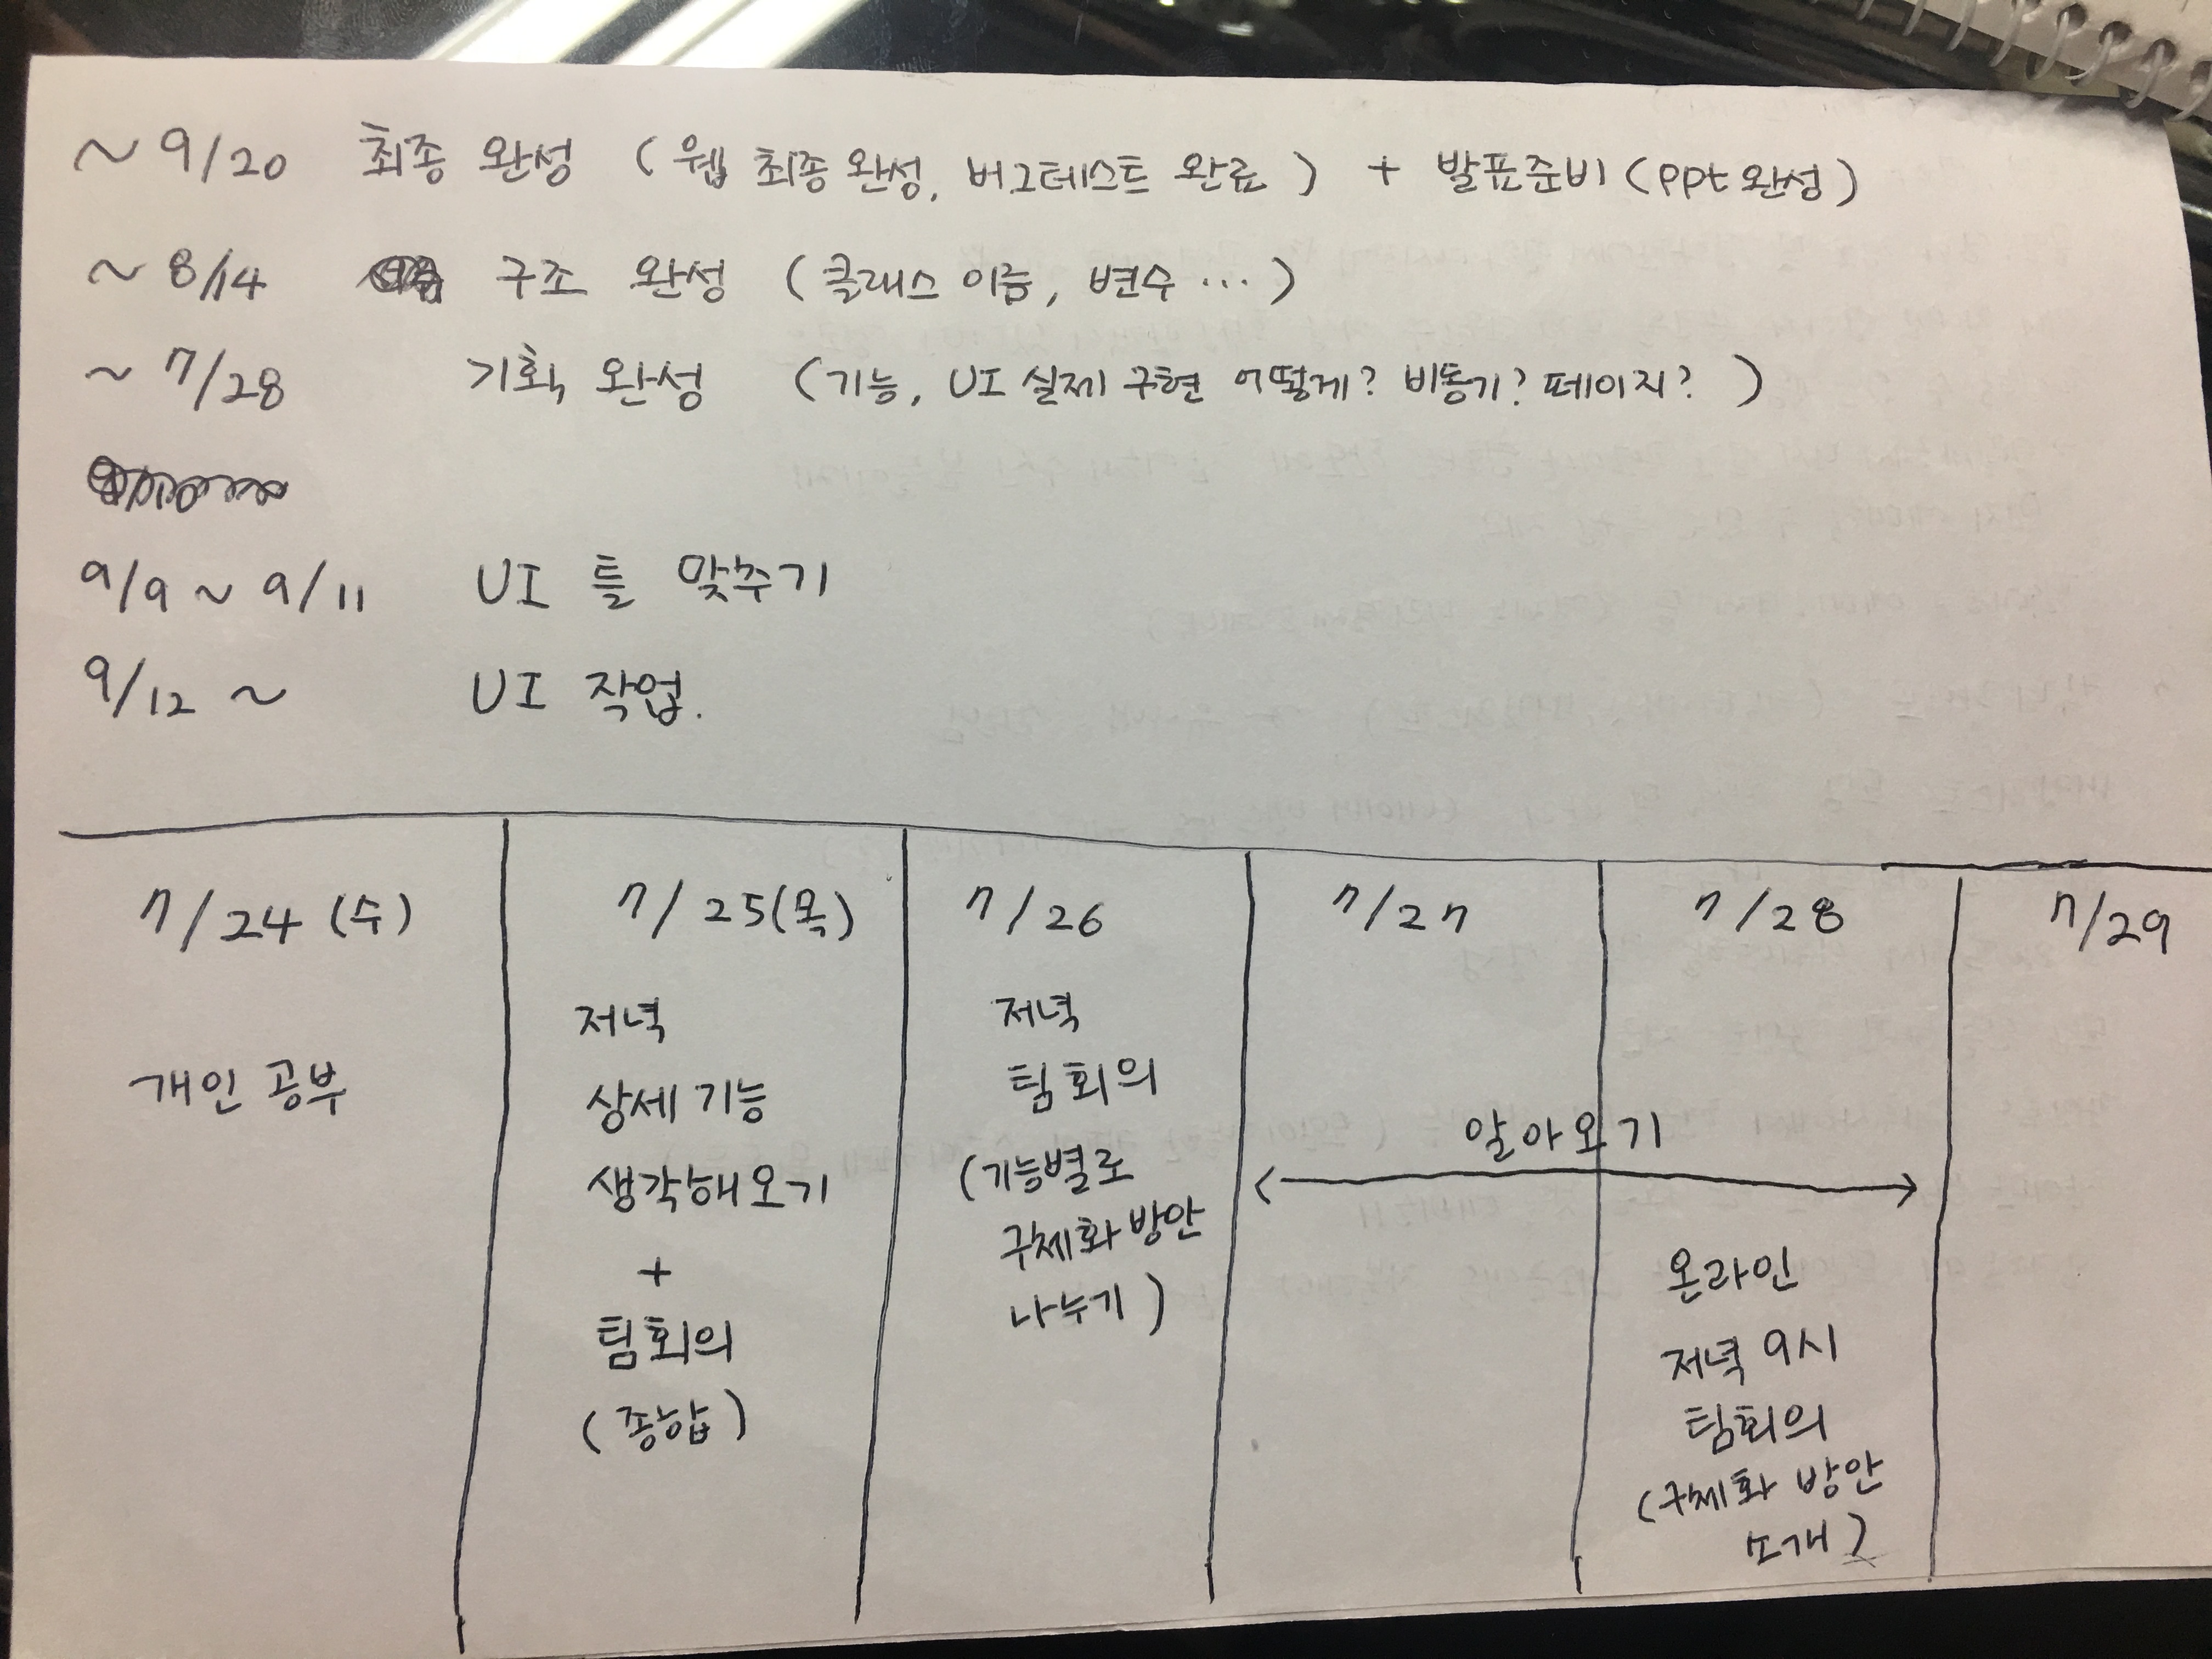 ~ 9/20 최종 완성 ( 웹 최종 완성, 버그테스트 완료 ) + 발표준비 (ppt 완성)
~ 8/14 구조 완성 ( 클래스 이름, 변수 ... )
~ 7/28 기획 완성 (기능, UI 실제 구현 어떻게? 비동기? 페이지? )
9/9 ~ 9/11 UI 틀 맞추기
9/12 ~ UI 작업.
7/24 (수)
개인 공부
7/25(목)
저녁
상세 기능
생각해오기
+
팀회의
(종합)
7/26
저녁
팀회의
(기능별로
구체화 방안
나누기)
7/27
7/28
알아오기
온라인
저녁 9시
팀회의
(구체화 방안
소개)
7/29